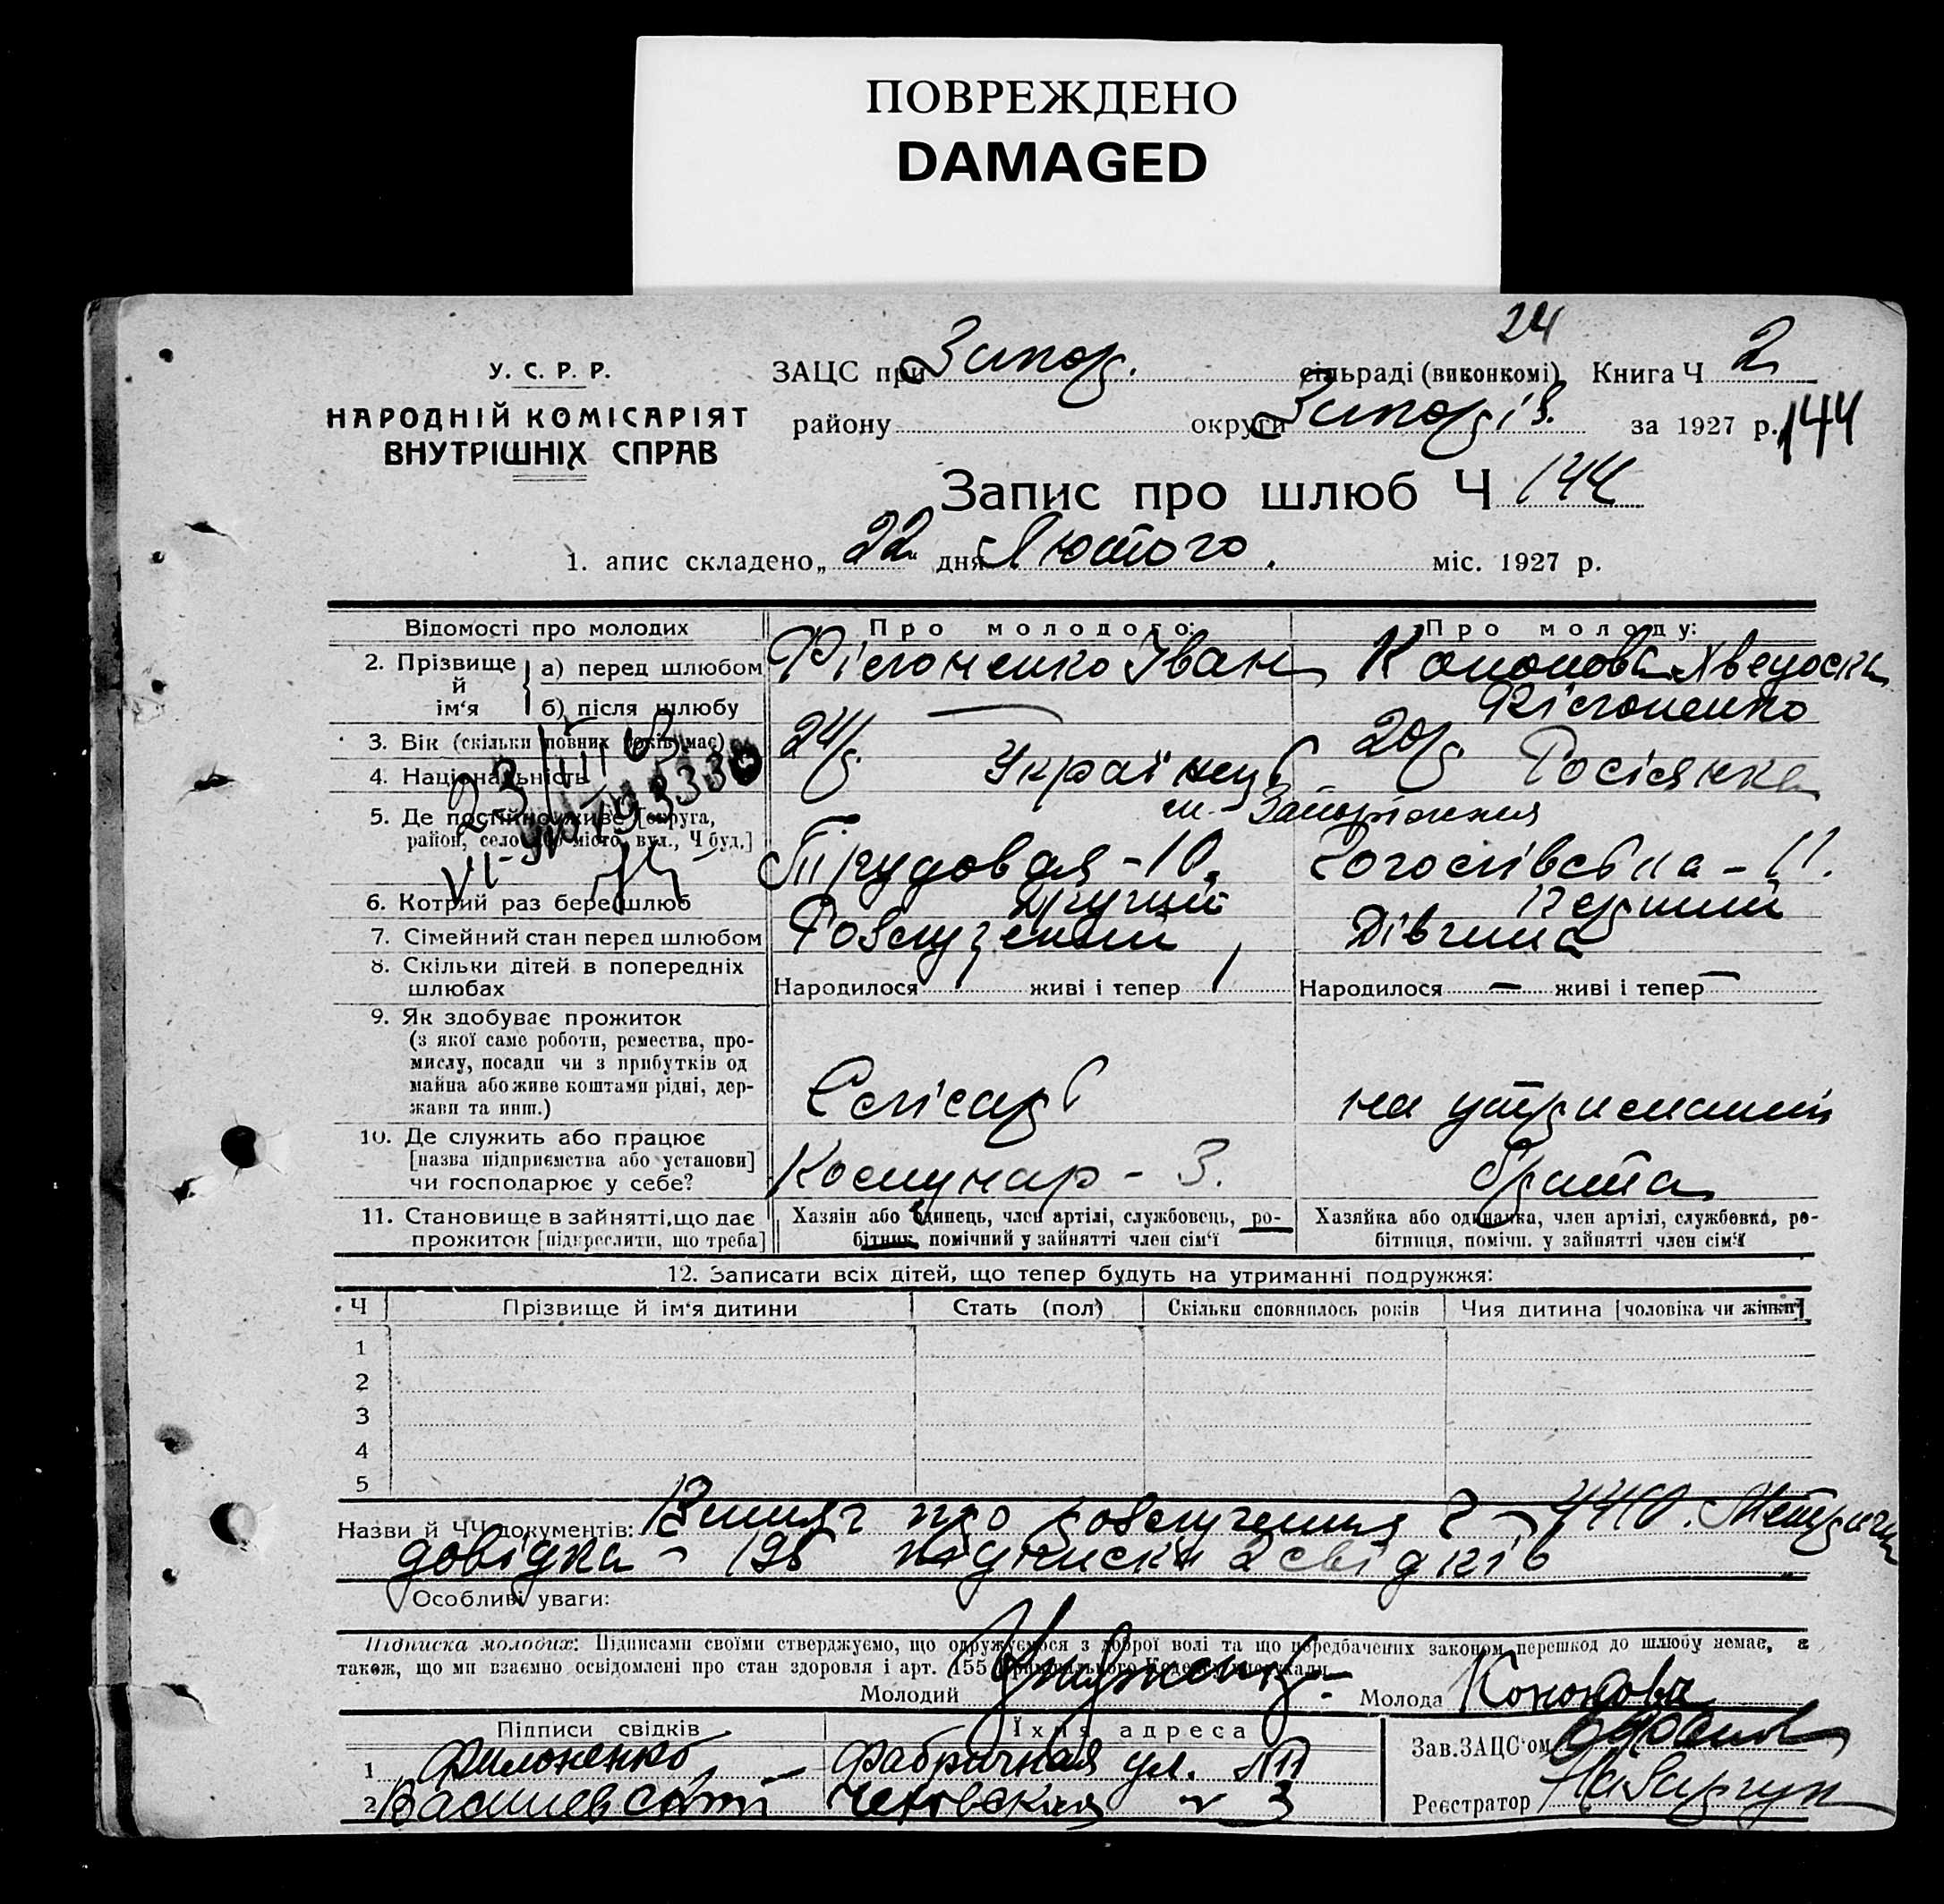 ПОВРЕЖДЕНО
DAMAGED
24
У. С. Р. Р.
НАРОДНІЙ КОМІСАРІЯТ
ВНУТРІШНІХ СПРАВ
ЗАЦС при Запор. сільраді (виконкомі) Книга Ч 2
району округи Запоріз. за 1927 р. 144
Запис про шлюб Ч 144
1. апис складено „ 22 дня Лютого. міс. 1927 р.
Відомості про молодих Про молодого: Про молоду:
2. Прізвище й ім'я
а) перед шлюбом Філоненко Іван Кононова Хведоска
б) після шлюбу — Філоненко
3. Вік (скільки повних років має) 24р. 20р.
4. Національність Українець Росіянка
5. Де постійно живе [округа, район, село або місто, вул., Ч буд.]
м. Запоріжжя
Трудовая - 10.
23/III
6. Котрий раз бере шлюб Другий Перший
7. Сімейний стан перед шлюбом Розлучений Дівчина
8. Скільки дітей в попередніх шлюбах
Народилося 1 живі і тепер 1 Народилося — живі і тепер —
9. Як здобуває прожиток
(з якої саме роботи, ремества, про-
мислу, посади чи з прибутків од
майна або живе коштами рідні, дер-
жави та инш.)
Слісарь на утриманні
10. Де служить або працює
[назва підприємства або установи]
чи господарює у себе?
Комунар - З. брата
11. Становище в зайнятті, що дає
прожиток [підкреслити, що треба]
Хазяін або одинець, член артілі, службовець, ро-
бітник, помічний у зайнятті член сім'ї
Хазяйка або одиначка, член артілі, службовка, ро-
бітниця, помічн. у зайнятті член сім'ї
12. Записати всіх дітей, що тепер будуть на утриманні подружжя:
Ч Прізвище й ім'я дитини Стать (пол) Скільки сповнилось років Чия дитина [чоловіка чи жінки]
1
2
3
4
5
Назви й ЧЧ документів: Витяг про розлучення Ч - 4410. Метрична
довідка - 195 підписки 2 свідків
Особливі уваги:
Підписка молодих: Підписами своїми стверджуємо, що одружуємося з доброї волі та що передбачених законом перешкод до шлюбу немає, а
також, що ми взаємно освідомлені про стан здоровля і арт. 155 Кримінального Кодексу
Молодий Молода Кононова
Підписи свідків Їхня адреса
Зав. ЗАЦС'ом
1 Филоненко Фабричная ул. №
2 Реєстратор Назарчук